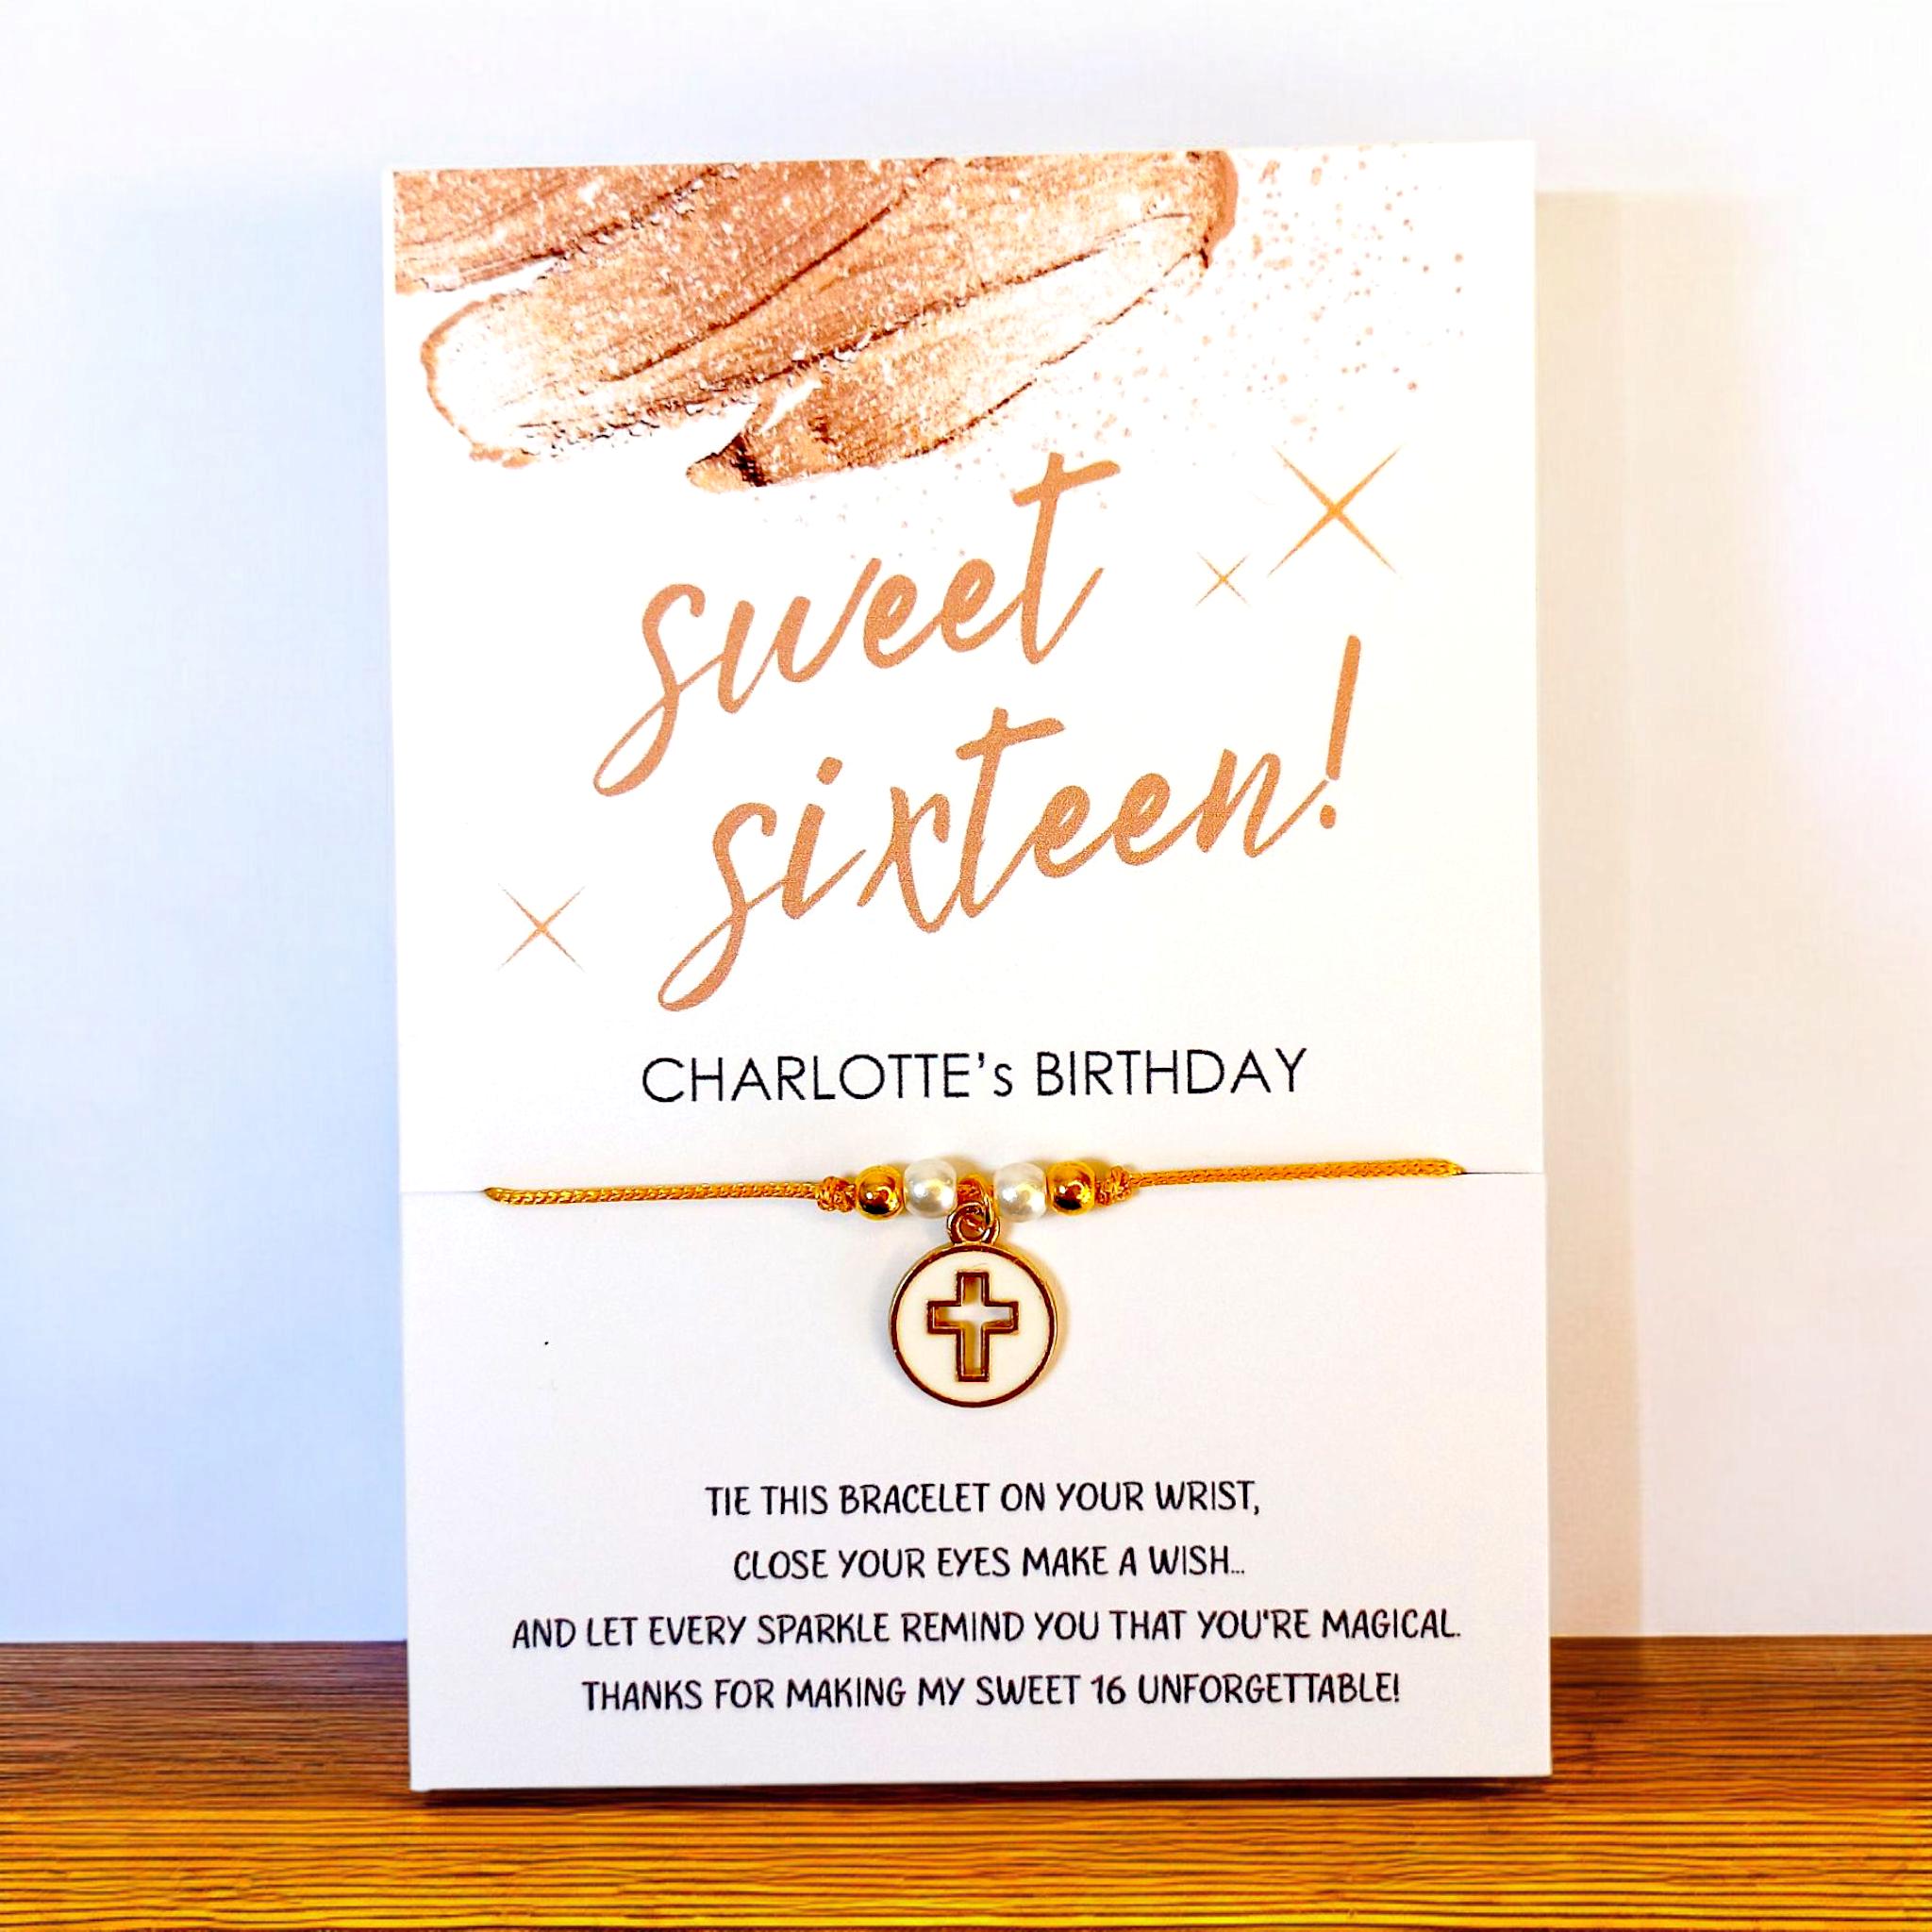 sweet
sixteen!
CHARLOTTE's BIRTHDAY
TIE THIS BRACELET ON YOUR WRIST,
CLOSE YOUR EYES MAKE A WISH...
AND LET EVERY SPARKLE REMIND YOU THAT YOU'RE MAGICAL.
THANKS FOR MAKING MY SWEET 16 UNFORGETTABLE!